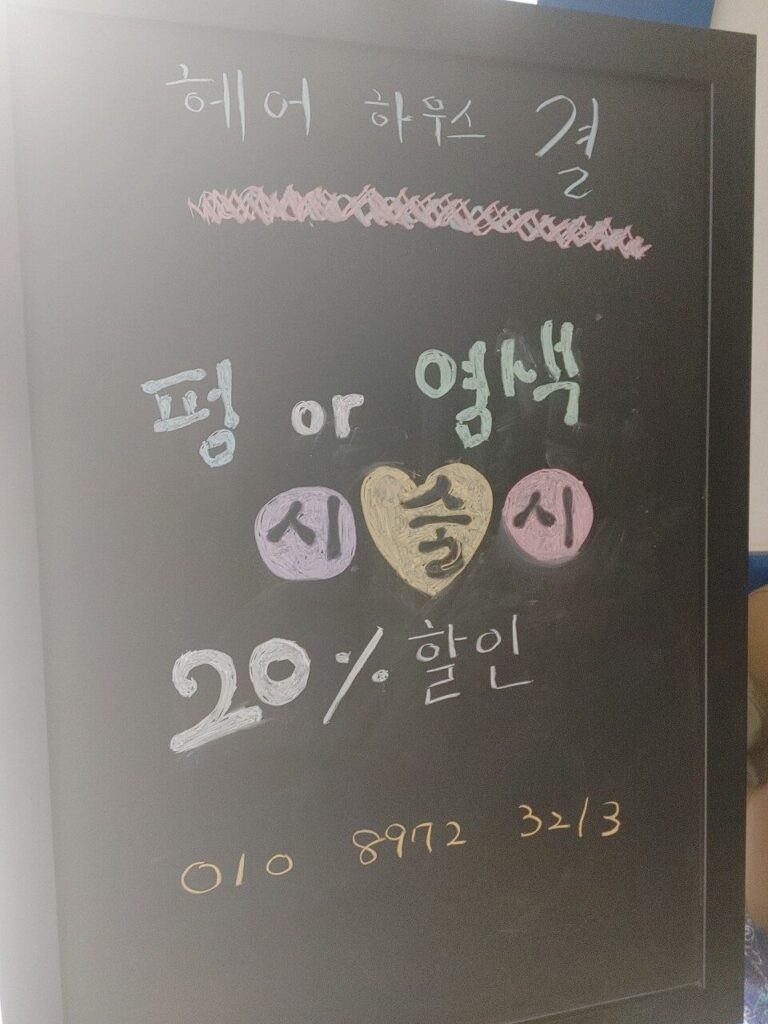 헤어 하우스 결
펑 or 염색
시술시
20% 할인
010 8972 3213